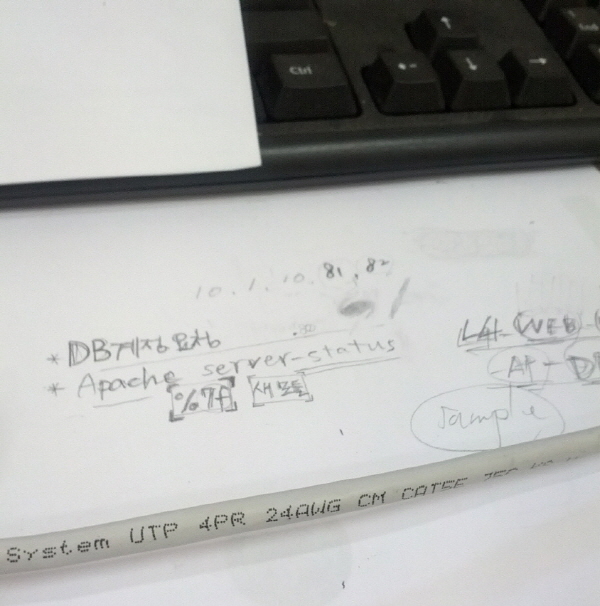 Ctrl
10.1.10.81,82
* DB계정요청
L4-WEB-
* Apache server-status
-AP-DB
[%7f] [새모듈]
sample
System UTP 4PR 24AWG CM